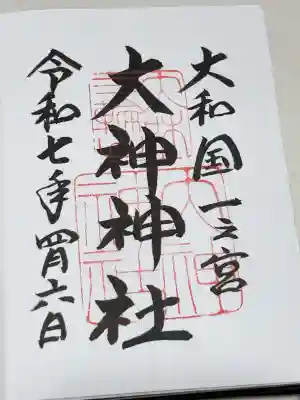 大和国一之宮
大神神社
令和七年四月六日